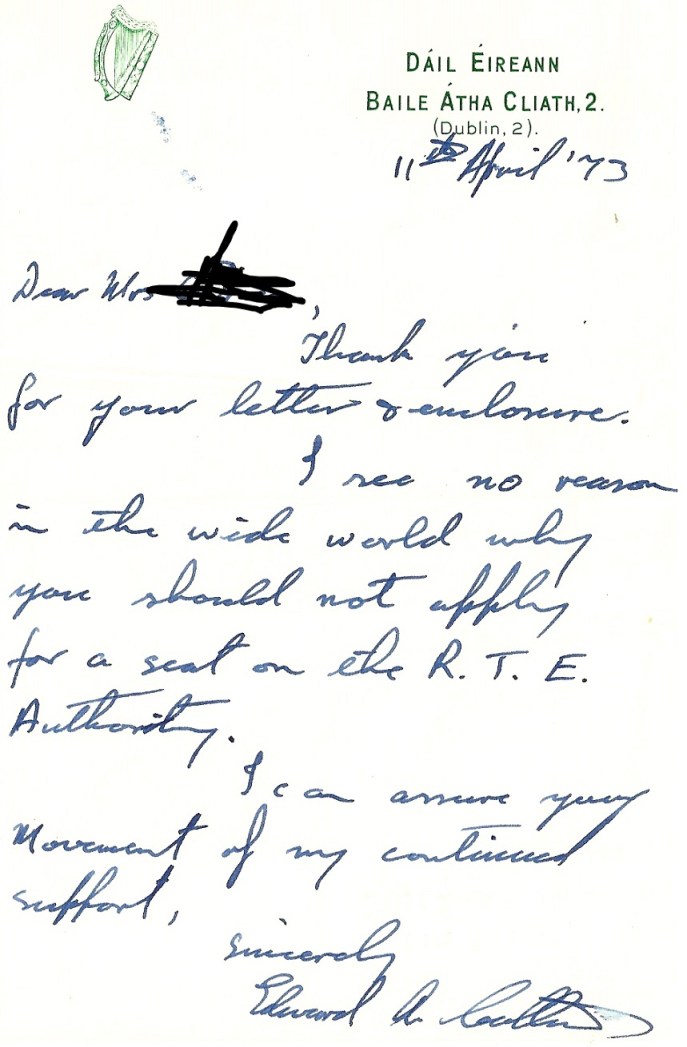 DÁIL ÉIREANN
BAILE ÁTHA CLIATH, 2.
(Dublin, 2).
11th April '73
Dear Mrs
Thank you
for your letter & enclosure.
I see no reason
in the wide world why
you should not apply
for a seat on the R. T. E.
Authority.
I can assure your
Movement of my continued
support,
sincerely
Edward A.